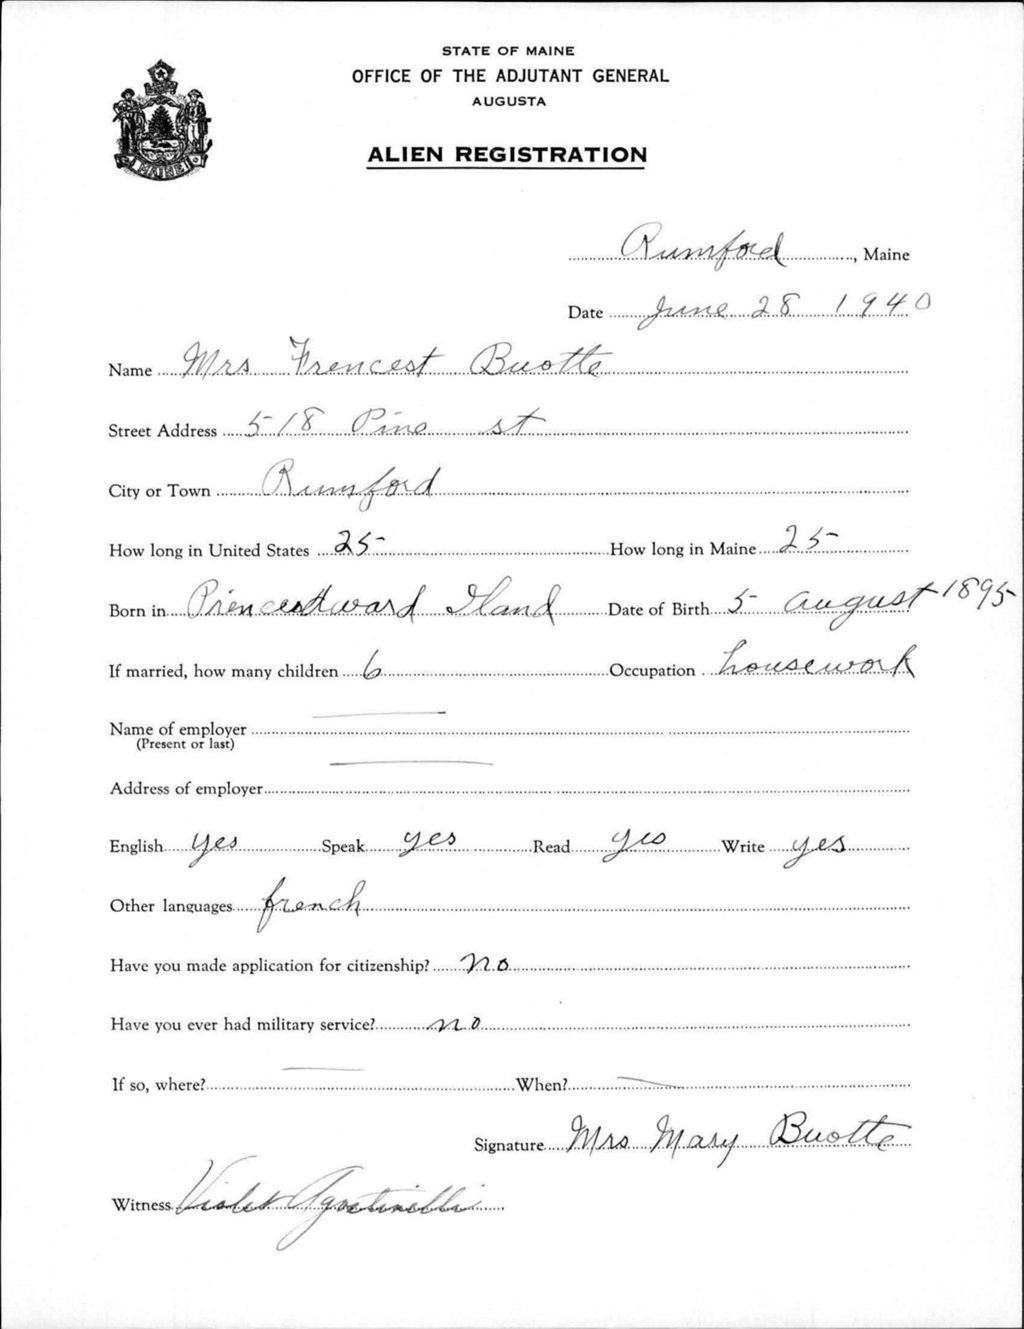 STATE OF MAINE
OFFICE OF THE ADJUTANT GENERAL
AUGUSTA
ALIEN REGISTRATION
MAINE
Rumford, Maine
Date June 28 1940
Name Mrs Frencest Buotte
Street Address 518 Pine st
City or Town Rumford
How long in United States 25 How long in Maine 25
Born in Prien Island Date of Birth 5 august 1895
If married, how many children 6 Occupation housework
Name of employer
(Present or last)
Address of employer
English yes Speak yes Read yes Write yes
Other languages french
Have you made application for citizenship? no
Have you ever had military service? no
If so, where? When?
Signature Mrs Mary Buotte
Witness Violet Agostinelli